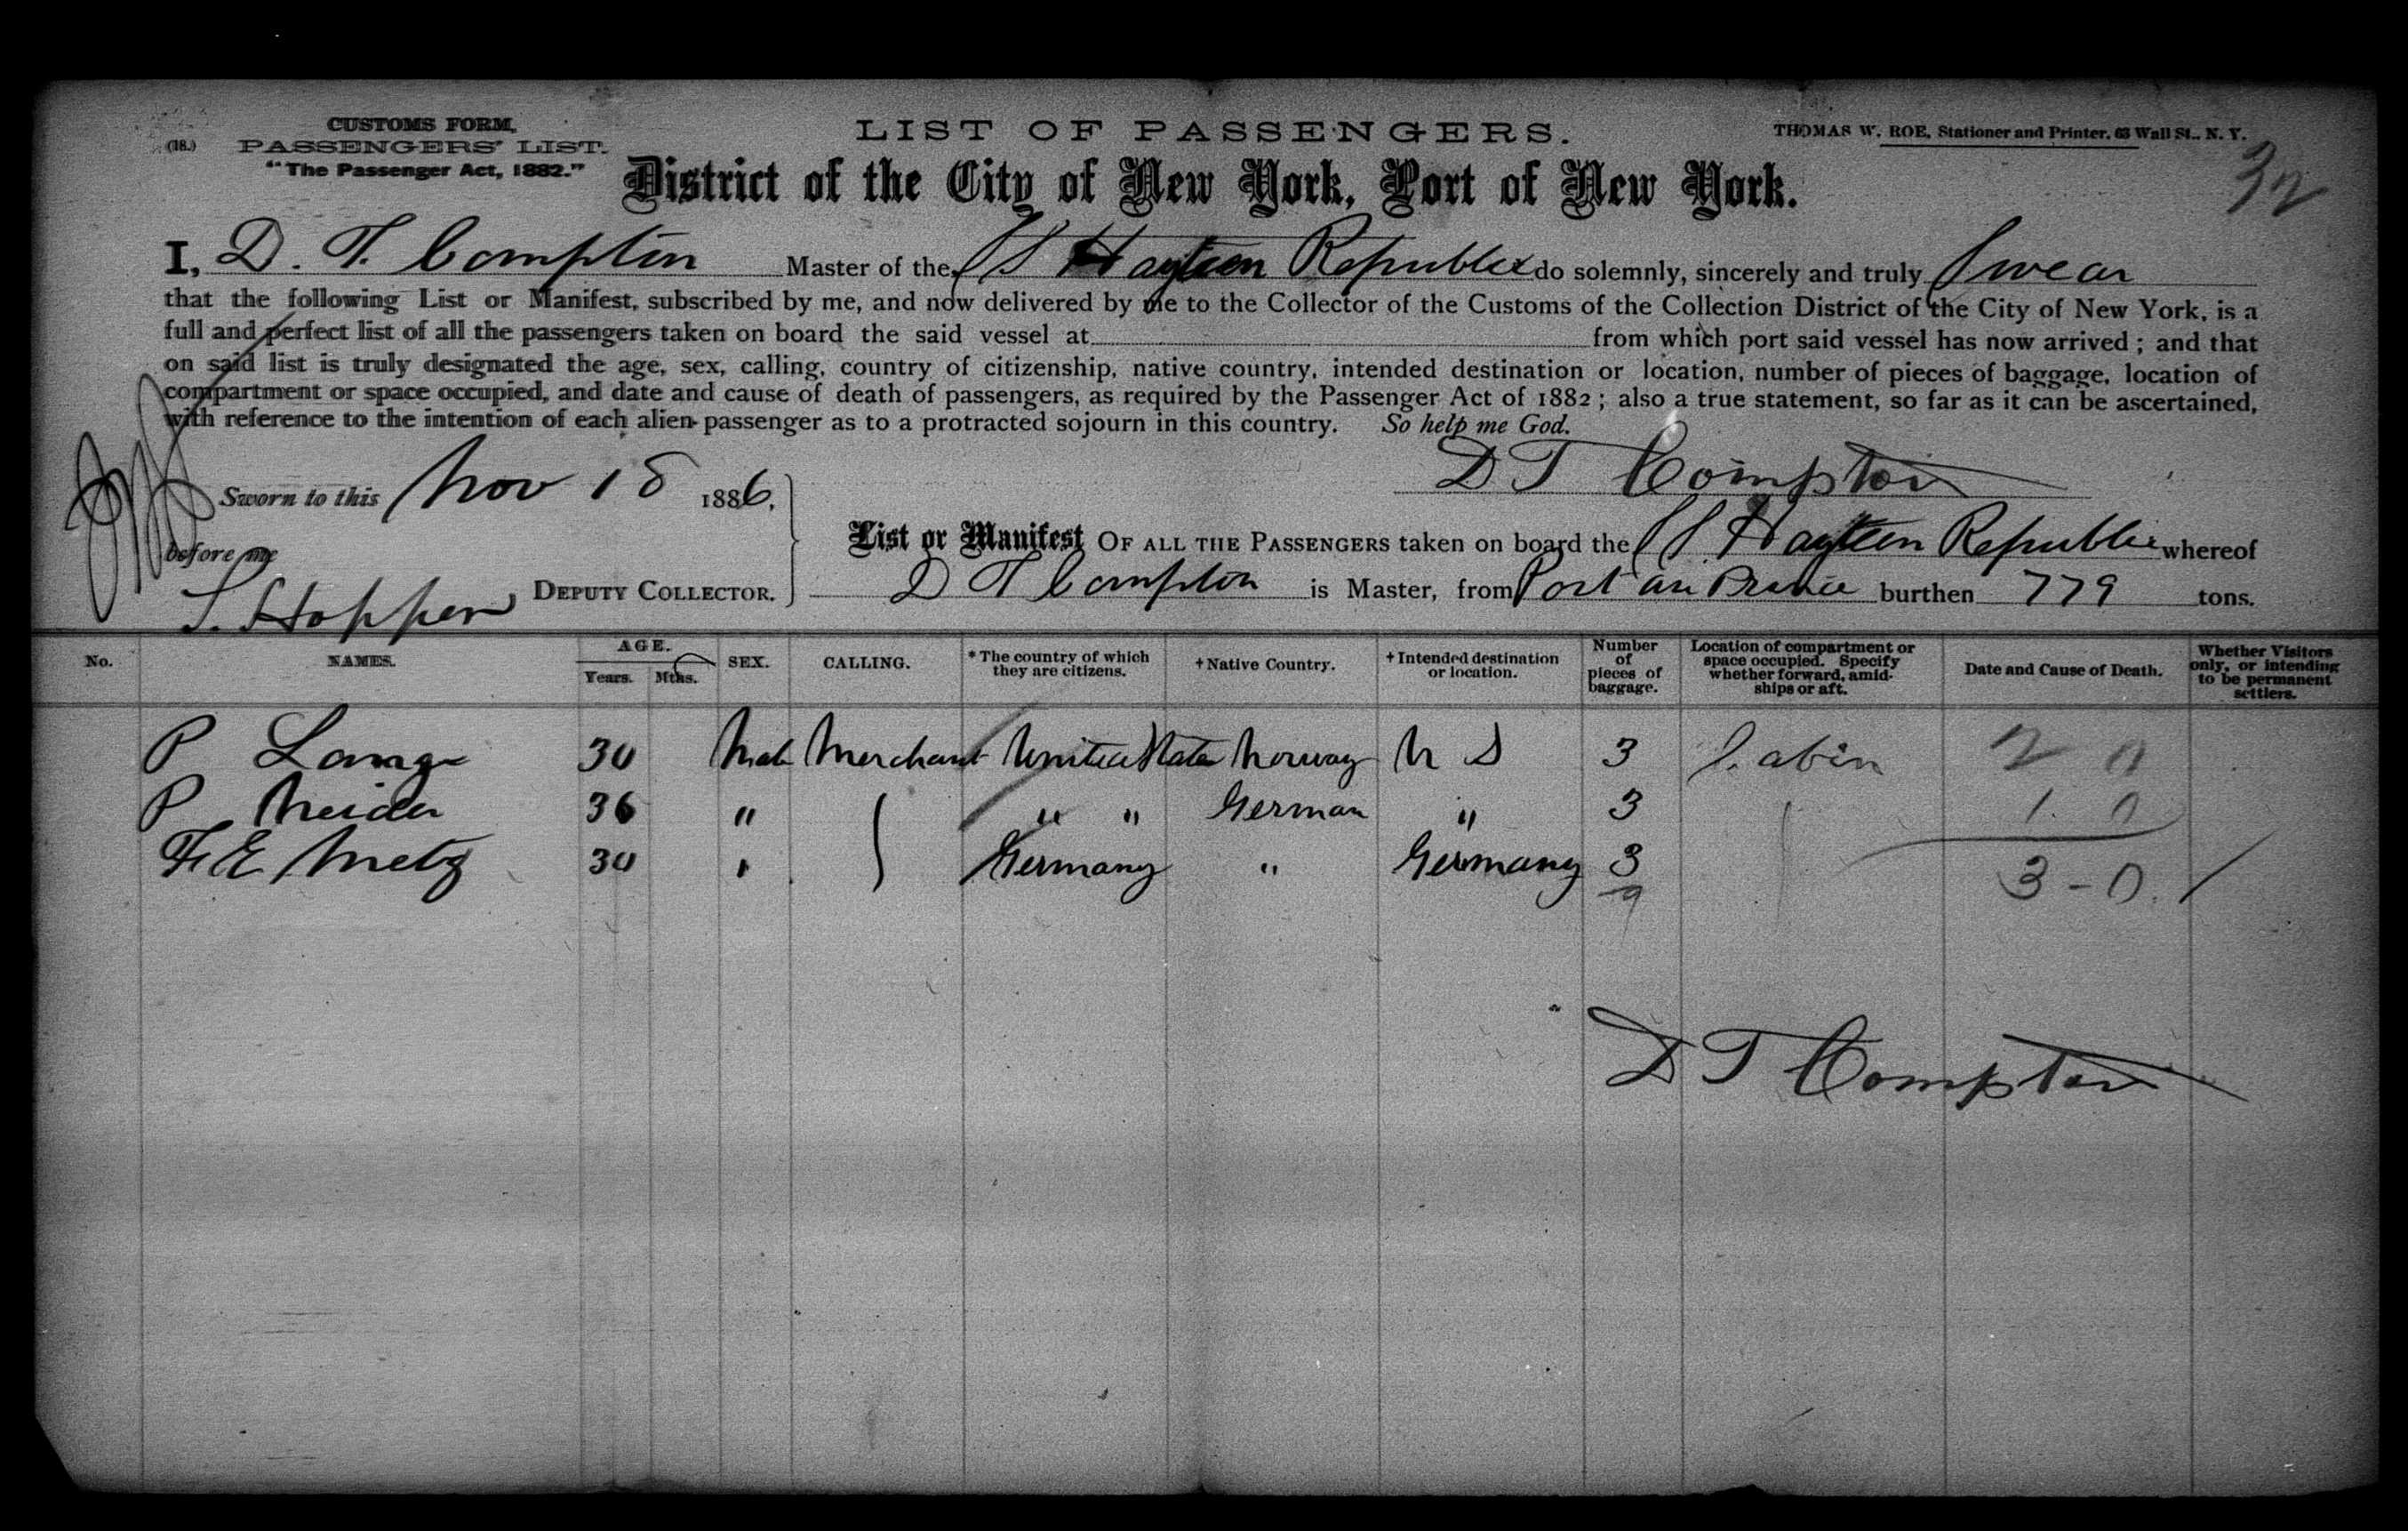 CUSTOMS FORM,
(18.) PASSENGERS' LIST.
"The Passenger Act, 1882."
LIST OF PASSENGERS.
THOMAS W. ROE, Stationer and Printer, 63 Wall St., N. Y.
32
District of the City of New York, Port of New York.
I, D. T. Compton Master of the SS Haytien Republic do solemnly, sincerely and truly Swear
that the following List or Manifest, subscribed by me, and now delivered by me to the Collector of the Customs of the Collection District of the City of New York, is a
full and perfect list of all the passengers taken on board the said vessel at from which port said vessel has now arrived; and that
on said list is truly designated the age, sex, calling, country of citizenship, native country, intended destination or location, number of pieces of baggage, location of
compartment or space occupied, and date and cause of death of passengers, as required by the Passenger Act of 1882; also a true statement, so far as it can be ascertained,
with reference to the intention of each alien passenger as to a protracted sojourn in this country. So help me God.
D T Compton
Sworn to this Nov 18 1886,
before me
S. Hopper DEPUTY COLLECTOR.
List or Manifest OF ALL THE PASSENGERS taken on board the SS Haytien Republic whereof
D T Compton is Master, from Port au Prince burthen 779 tons.
No. NAMES. AGE. Years. Mths. SEX. CALLING. *The country of which they are citizens. †Native Country. †Intended destination or location. Number of pieces of baggage. Location of compartment or space occupied. Specify whether forward, amidships or aft. Date and Cause of Death. Whether Visitors only, or intending to be permanent settlers.
P Lange 30 Male Merchant United States Norway U S 3 Cabin 2 0
P 36 " " " German " 3 1. 0
F E Metz 30 " Germany " Germany 3 3 - 0.
9
D T Compton